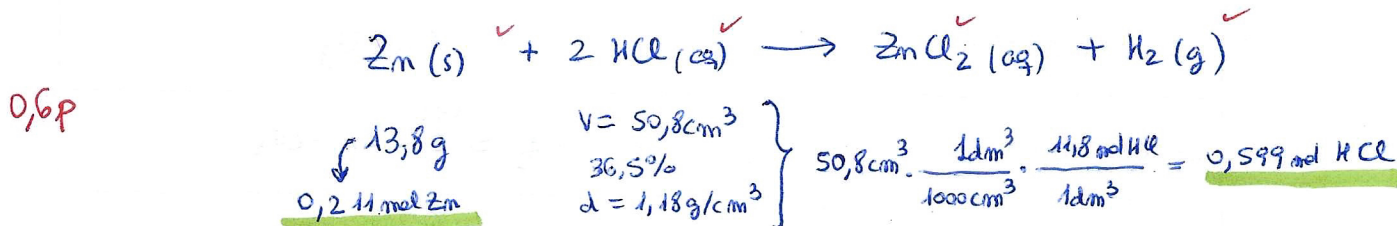 Zn (s) + 2 HCl (aq) → ZnCl2 (aq) + H2 (g)
0,6p
13,8g
0,211 mol Zn
V = 50,8cm³
36,5%
d = 1,18g/cm³
50,8cm³ · 1dm³/1000cm³ · 11,8 mol HCl/1dm³ = 0,599 mol HCl